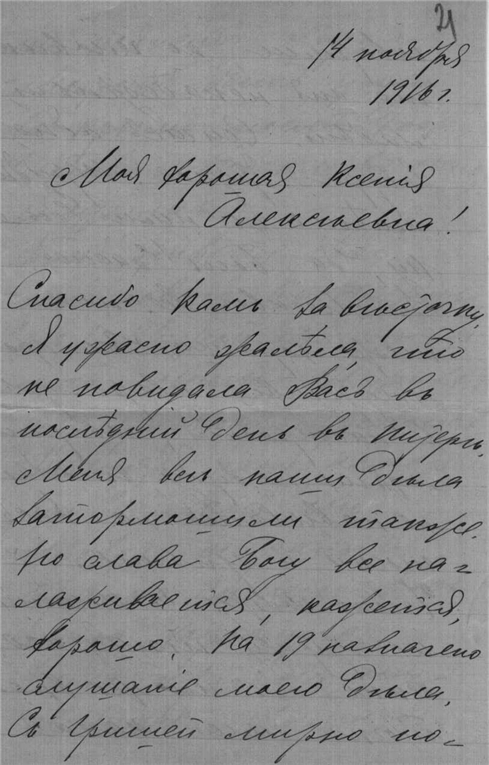 21
14 ноября
1916 г.
Моя хорошая Ксенія
Алексѣевна!
Спасибо Вамъ за вѣсточку,
Я ужасно жалѣла, что
не повидала Васъ въ
послѣдній день въ Питерѣ.
Меня всѣ наши дѣла
затормошили также.
Но слава Богу все на-
лаживается, кажется,
хорошо. На 19 назначено
слушаніе моего дѣла.
Съ Гришей мирно по-